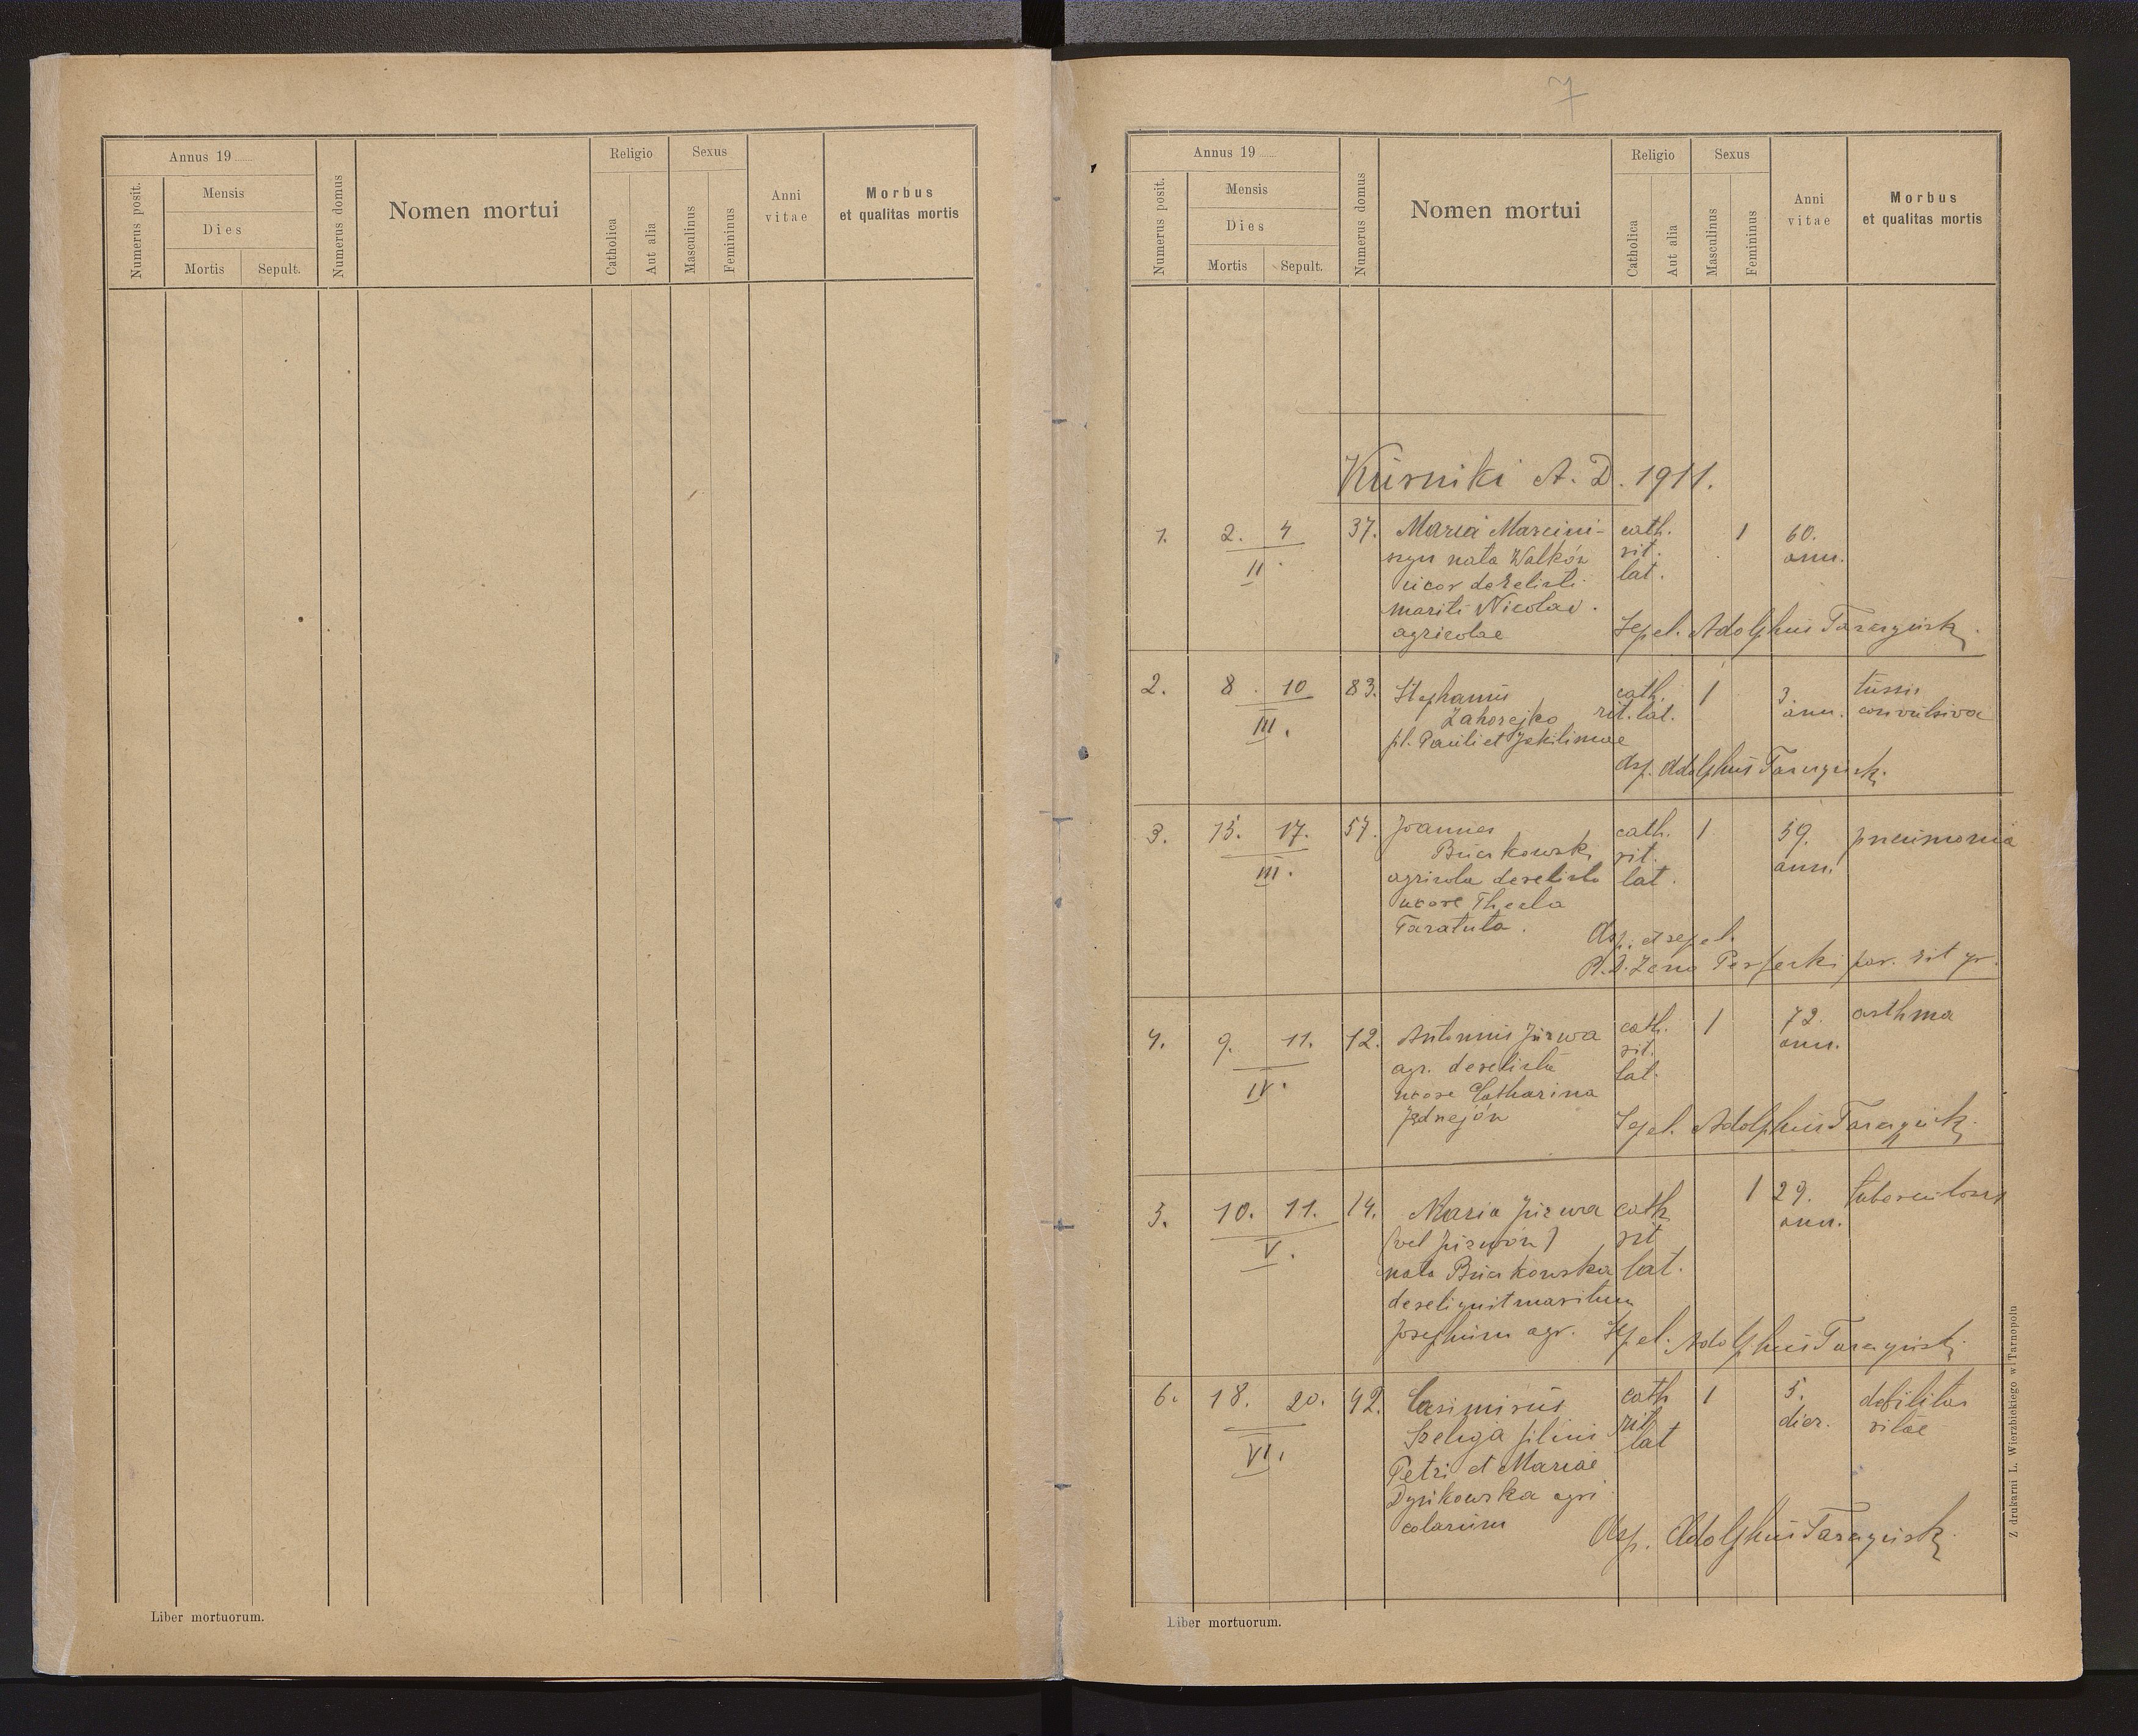 Annus 19
Numerus posit.
Mensis
Dies
Mortis
Sepult.
Numerus domus
Nomen mortui
Religio
Catholica
Aut alia
Sexus
Masculinus
Femininus
Anni
vitae
Morbus
et qualitas mortis
Liber mortuorum.
7
Annus 19
Numerus posit.
Mensis
Dies
Mortis
Sepult.
Numerus domus
Nomen mortui
Religio
Catholica
Aut alia
Sexus
Masculinus
Femininus
Anni
vitae
Morbus
et qualitas mortis
Kurniki A. D. 1911.
1. 2. 4 37. Maria Marcini- cath. 1 60.
szyn nata Walków rit. ann.
II uxor derelicti lat.
mariti Nicolai.
agricolae Sepel. Adolphus
2. 8. 10 83. Stephanus cath. 1 3. tussis
Zahorejko rit. lat. ann. convulsiva
III. fil. Pauli et
Asp. Adolphus
3. 15. 17. 57. Joannes cath. 1 59. pneumonia
rit. ann.
III. agricola derelicta lat.
uxore Thecla
Taratuta.
Asp. et sepel.
R. D. Zeno Perfecki par. rit gr.
4. 9. 11. 12. Antonius cath. 1 72. asthma
agr. derelicta rit. ann.
IV. uxore Catharina lat.
Sepel. Adolphus
5. 10. 11. 14. Maria cath 1 29. tuberculosis
(vel rit ann.
V. nata lat.
dereliquit maritum
Josephum agr. Sepel. Adolphus
6. 18. 20. 42. Casimirus cath 1 5. debilitas
Szeliga filius rit dier. vitae
lat
VI. Petri et Mariae
agri
colarum
Asp. Adolphus
Liber mortuorum.
Z drukarni L. Wierzbickiego w Tarnopolu